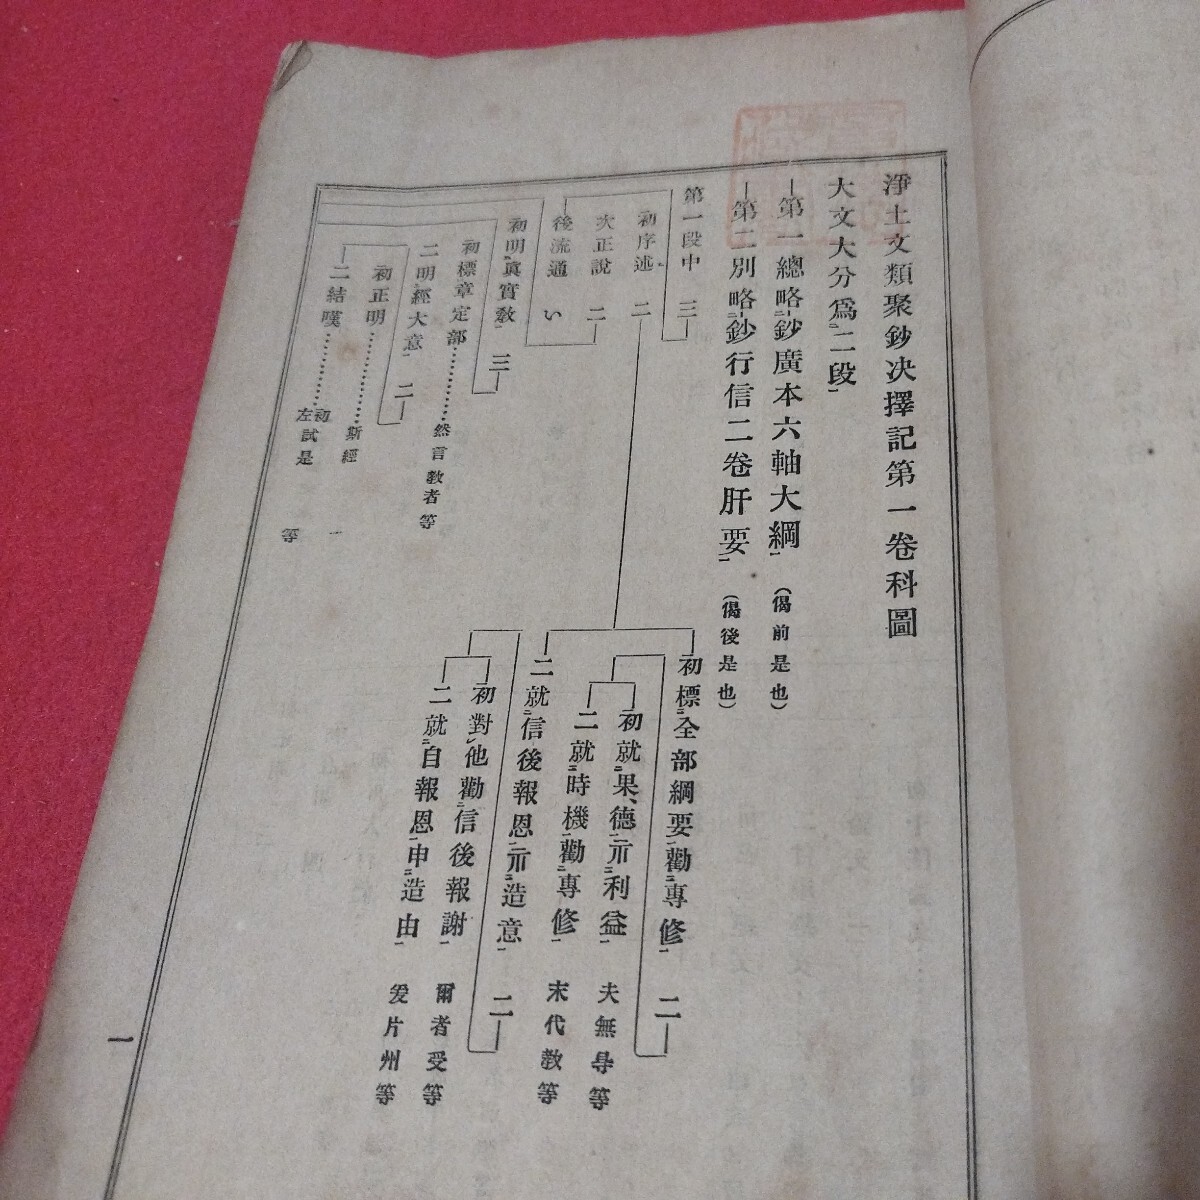 淨土文類聚鈔决擇記第一卷科圖
大文大分爲二二段一
第一總略二鈔廣本六軸大綱一 (偈前是也)
第二別略二鈔行信二卷肝要一 (偈後是也)
第一段中 三
初序述 二
次正說 二
後流通 い
初標二全部綱要一勸二專修一 二
初就二果、德一示二利益一 夫無导等
二就二時機一勸二專修一 末代敎等
二就二信後報恩一示二造意一 二
初對レ他勸二信後報謝一 爾者受等
二就二自報恩一申二造由一 爰片州等
初明二眞實敎一 三
初標章定部 然言敎者等
二明二經大意一 二
初正明 斯經
二結嘆 初
左試是 等
一